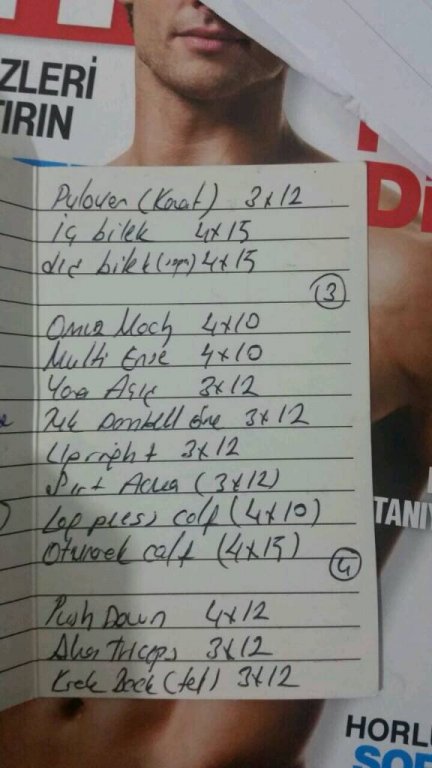 ZLERİ
TIRIN
Dİ
Pulover (Kanat) 3x12
iç bilek 4x15
dış bilek 4x15
3
Omuz Mach 4x10
Multi Ense 4x10
Yana Açış 3x12
Tek Dambell öne 3x12
Upright 3x12
Sırt Açma (3x12)
Leg press calf (4x10)
Oturarak calf (4x15)
4
TANIY
Push Down 4x12
Alın Triceps 3x12
Kick Back (tek) 3x12
HORLU
SOR